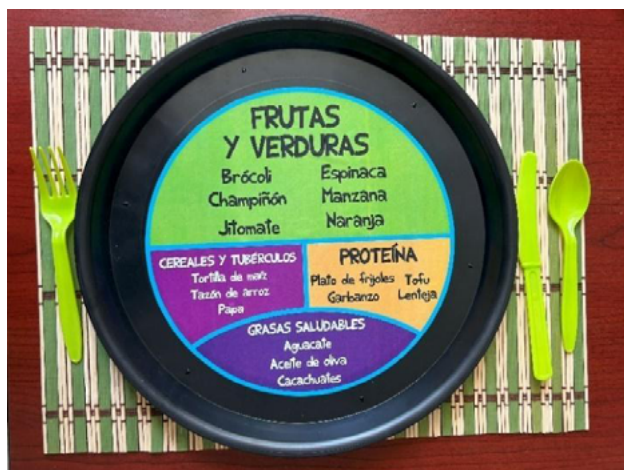 FRUTAS
Y VERDURAS
Brócoli Espinaca
Champiñón Manzana
Jitomate Naranja
CEREALES Y TUBÉRCULOS
Tortilla de maíz
Tazón de arroz
Papa
PROTEÍNA
Plato de frijoles Tofu
Garbanzo Lenteja
GRASAS SALUDABLES
Aguacate
Aceite de oliva
Cacachuates